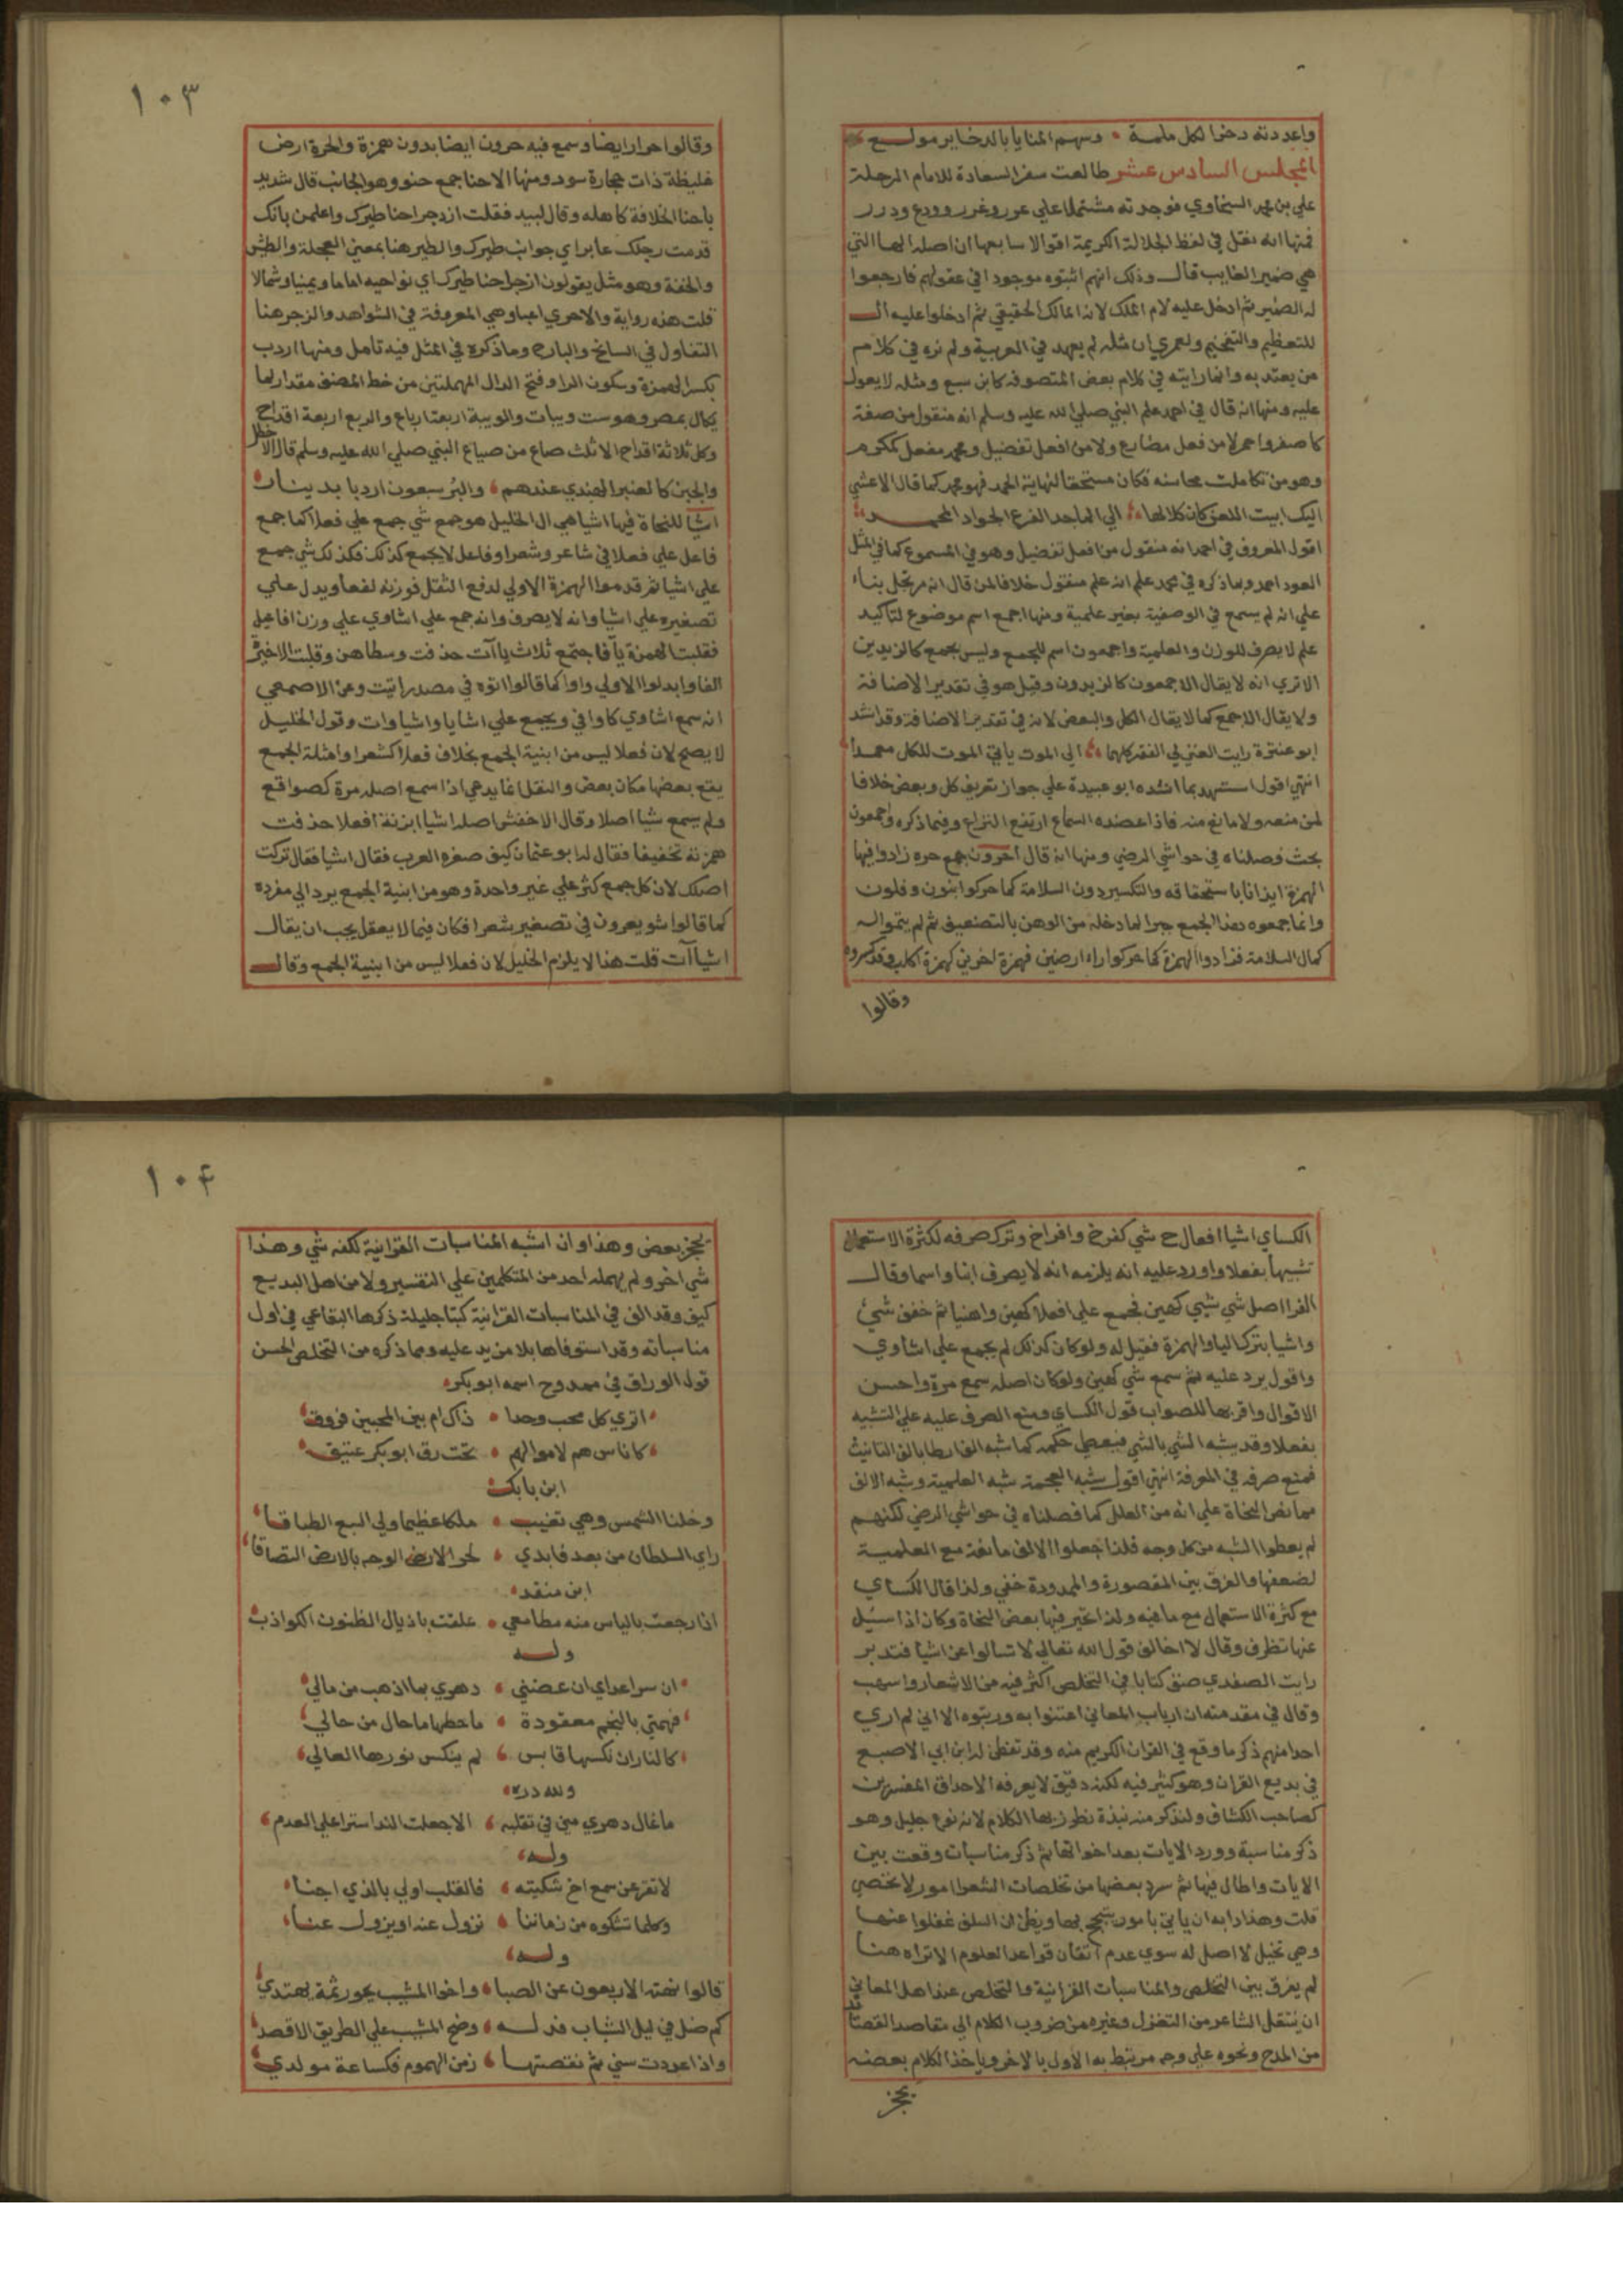 واعددته دخرا لكل ملمة • وسهم المنايا بالدخاير مولـــع
المجلس السادس عشر طالعت سفر السعادة للامام الرحلة
علي بن محمد السخاوي فوجدته مشتملا علي عور وغرر وودع ودرر
فمنها انه نقل في لفظ الجلالة الكريمة اقوالا سابعها ان اصله الها التي
هي ضمير الغايب قال وذلك انهم اثبتوه موجودا في عقولهم فارجعوا
له الضمير ثم ادخل عليه لام الملك لانه المالك الحقيقي ثم ادخلوا عليه ال
للتعظيم والتفخيم ولعمري ان مثله لم يعهد في العربية ولم نره في كلام
من يعتد به وانما رايته في كلام بعض المتصوفه كابن سبع ومثله لا يعول
عليه ومنها انه قال في احمد علم النبي صلي الله عليه وسلم انه منقول من صفة
كاصفر واحمر لا من فعل مضارع ولا من افعل تفضيل ومحمد مفعل كمكرم
وهو من تكاملت محاسنه فكان مستحقا لنهاية الحمد فهو محمد كما قال الاعشي
اليك ابيت اللعن كان كلالها ؛ الي الماجد الفرع الجواد المحمـــد
اقول المعروف في احمد انه منقول من افعل تفضيل وهو في المسموع كما في المثل
العود احمد وما ذكره في محمد علم انه علم منقول خلافا لمن قال انه مرتجل بناء
علي انه لم يسمع في الوصفية بغير علمية ومنها اجمع اسم موضوع لتاكيد
علم لا يصرف للوزن والعلمية واجمعون اسم للجمع وليس بجمع كالزيدين
الا تري انه لا يقال الاجمعون كالزيدون وقيل هو في تقدير الاضافة
ولا يقال الاجمع كما لا يقال الكل والبعض لانه في تقدير الاضافة وقد انشد
ابو عنترة رايت الغني في الفقر كلهما ؛ الي الموت ياتي الموت للكل معمدا
انتهي اقول استشهد بما انشده ابو عبيدة علي جواز تعريف كل وبعض خلافا
لمن منعه ولا مانع منه فاذا عضده السماع ارتفع النزاع وفيما ذكره واجمعون
بحث فصلناه في حواشي الرضي ومنها انه قال احرون جمع حره زادوا فيها
الهمزة ايذانا باستحقاقه والتكسير دون السلامة كما حركوا بنون وقلون
وانما جمعوه هذا الجمع جبرا لما دخله من الوهن بالتضعيف ثم لم يتموا له
كمال السلامة فزادوا الهمزة كما حركوا راء ارضين فهمزة احرين كهمزة اكلب وقد كسروه
وقالوا
١٠٣
وقالوا حرار ايضا وسمع فيه حرون ايضا بدون همزة والحرة ارض
غليظة ذات حجارة سود ومنها الاحنا جمع حنو وهو الجانب قال شديد
باحنا الخلافة كاهله وقال لبيد فقلت ازدجر احنا طيرك واعلمن بانك
قدمت رجلك عابر اي جوانب طيرك والطير هنا بمعني العجلة والطيش
والخفة وهو مثل يقولون ازجر احنا طيرك اي نواحيه اماما ويمينا وشمالا
قلت هذه رواية والاخري اعبا وهي المعروفة في الشواهد والزجر هنا
التفاول في السانح والبارح وما ذكره في المثل فيه تامل ومنها اردب
بكسر الهمزة وسكون الرا وفتح الدال المهملتين من خط المصنف مقدار لها
يكال بمصر وهو ست ويبات والويبة اربعة ارباع والربع اربعة اقداح
وكل ثلاثة اقداح الا ثلث صاع من صياع النبي صلي الله عليه وسلم قال الاخطل
والخبز كالعنبر الهندي عندهم ، والبر سبعون اردبا بدينار
اشيا للنحاة فيها اشيا هي ال الخليل هو جمع شي جمع علي فعلا كما جمع
فاعل علي فعلا في شاعر وشعرا وفاعل لا يجمع كذلك فكذلك شي جمع
علي اشيا ثم قدموا الهمزة الاولي لدفع الثقل فوزنه لفعا ويدل علي
تصغيره علي اشيا وانه لا يصرف وانه جمع علي اشاوي علي وزن افاعل
فقلبت الهمزة يآ فاجتمع ثلاث ياآت حذفت وسطاهن وقلبت الاخيرة
الفا وابدلوا الاولي واوا كما قالوا اتوه في مصدر اتيت وعن الاصمعي
انه سمع اشاوي كاوافي ويجمع علي اشايا واشياوات وقول الخليل
لا يصح لان فعلا ليس من ابنية الجمع بخلاف فعلا كشعرا وامثلة الجمع
يقع بعضها مكان بعض والنقل انما يدعي اذا سمع اصله مرة كصواقع
ولم يسمع شيا اصلا وقال الاخفش اصله اشيا بزنة افعلا حذفت
همزته تخفيفا فقال له ابو عثمان كيف صغره العرب فقال اشيا فقال تركت
اصلك لان كل جمع كثر علي غير واحدة وهو من ابنية الجمع يرد الي مفرده
كما قالوا شويعرون في تصغير شعرا فكان فيما لا يعقل يجب ان يقال
اشيآآت قلت هذا لا يلزم الخليل لان فعلا ليس من ابنية الجمع وقال
الكساي اشيا افعال ح شي كفرخ وافراخ وترك صرفه لكثرة الاستعمال
تشبيها بفعلا واورد عليه انه يلزمه انه لا يصرف ابنا واسما وقال
الفرا اصل شي شيي كهين فجمع علي افعلا كهين واهنيا ثم خفف شيء
واشيا بترك اليا والهمزة فقيل له ولو كان كذلك لم يجمع علي اشاوي
واقول يرد عليه ثم سمع شي كهين ولو كان اصله سمع مرة واحسن
الاقوال واقربها للصواب قول الكساي ومنع الصرف عليه علي التشبيه
بفعلا وقد يشبه الشي بالشي فيعطي حكمه كما شبه الف ارطا بالف التانيث
فمنع صرفه في المعرفة انتهي اقول شبه العجمة شبه العلمية وشبه الالف
مما نص النحاة علي انه من العلل كما فصلناه في حواشي الرضي لكنهم
لم يعطوا الشبه من كل وجه فلذا جعلوا الالف مانعة مع العلمية
لضعفها والفرق بين المقصورة والممدودة خفي ولذا قال الكساي
مع كثرة الاستعمال مع ما فيه ولذا تحير فيها بعض النحاة وكان اذا سئل
عنها تظرف وقال لا اخالف قول الله تعالي لا تسالوا عن اشيا فتدبر
رايت الصفدي صنف كتابا في التخلص اكثر فيه من الاشعار واسهب
وقال في مقدمته ان ارباب المعاني اعتنوا به ورتبوه الا اني لم اري
احدا منهم ذكر ما وقع في القران الكريم منه وقد تفطن له ابن ابي الاصبع
في بديع القران وهو كثير فيه لكنه دقيق لا يعرفه الا حذاق المفسرين
كصاحب الكشاف ولنذكر منه نبذة نطرز بها الكلام لانه نوع جليل وهو
ذكر مناسبة وورد الايات بعد اخواتها ثم ذكر مناسبات وقعت بين
الايات واطال فيها ثم سرد بعضها من تخلصات الشعرا امور لا تحصي
قلت وهذا دابه ان ياتي بامور يتبجح بها ويظن ان السلف غفلوا عنها
وهي تخيل لا اصل له سوي عدم اتقان قواعد العلوم الا تراه هنا
لم يفرق بين التخلص والمناسبات القرانية والتخلص عند اهل المعاني
ان ينتقل الشاعر من التغزل وغيره من ضروب الكلام الي مقاصد القصايد
من المدح ونحوه علي وجه مرتبط به الاول بالاخر وياخذ الكلام بعضه
بحجز
١٠٤
بحجز بعض وهذا وان اشبه المناسبات القرانية لكنه شي وهذا
شي اخر ولم يهمله احد من المتكلمين علي التفسير ولا من اهل البديع
كيف وقد الف في المناسبات القرانية كتبا جليلة ذكرها البقاعي في اول
مناسباته وقد استوفاها بلا مزيد عليه ومما ذكره من التخلص الحسن
قول الوراق في ممدوح اسمه ابو بكر
اتري كل محب وحدا • ذاك ام بين المحبين فروق
كاناس هم لاموالهم • تحت رق ابو بكر عتيق
ابن بابك
وخلنا الشمس وهي تغيب • ملكا عظيما ولي السبع الطباقا
راي السلطان من بعد فابدي • لحر الارض الوجه بالارض التصاقا
ابن منقد
اذا رجعت بالياس منه مطامعي • علقت باذيال الظنون الكواذب
ولـــه
ان سر اعداي ان عضني • دهري بما اذهب من مالي
فهمتي بالنجم معقودة • ما حطها ما حال من حالي
كالنار ان نكسها قابس ، لم ينكس نورها العالي
ولله دره
ما غال دهري مني في تقلبه ، الا جعلت الندا سترا علي العدم
وله
لا تقرعن سمع اخ شكيته ، فالقلب اولي بالذي اجنا
وكلما تشكوه من زماننا • نزول عنه او يزول عنا
ولـــه
قالوا نهته الاربعون عن الصبا • واخو المشيب يجور ثمة يهتدي
كم ضل في ليل الشباب فدلـــه • وضح المشيب علي الطريق الاقصد
واذا عددت سني ثم نقصتهـا ، زمن الهموم فكساعة مولدي